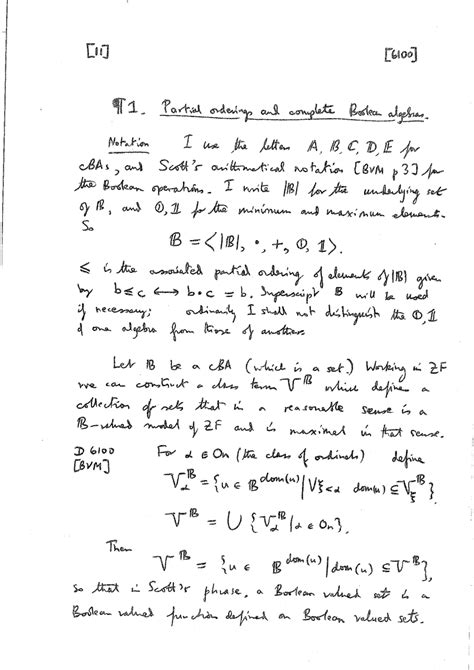 [11] [6100]
¶1. Partial orderings and complete Boolean algebras.
Notation I use the letters A, B, C, D, E for
cBAs, and Scott's arithmetical notation [BVM p3] for
the Boolean operations. I write |B| for the underlying set
of B, and 𝟘, 𝟙 for the minimum and maximum elements.
So
𝔹 = <|𝔹|, ·, +, 𝟘, 𝟙>.
≤ is the associated partial ordering of elements of |𝔹| given
by b ≤ c ⟷ b·c = b. Superscript 𝔹 will be used
if necessary; ordinarily I shall not distinguish the 𝟘, 𝟙
of one algebra from those of another.
Let 𝔹 be a cBA (which is a set.) Working in ZF
we can construct a class term V^𝔹 which defines a
collection of sets that in a reasonable sense is a
𝔹-valued model of ZF and is maximal in that sense.
D 6100 For α ∈ On (the class of ordinals) define
[BVM]
V_α^𝔹 = {u ∈ 𝔹^dom(u) | ∀ξ<α dom(u) ⊆ V_ξ^𝔹},
V^𝔹 = ∪ {V_α^𝔹 | α ∈ On}.
Then
V^𝔹 = {u ∈ 𝔹^dom(u) | dom(u) ⊆ V^𝔹},
so that in Scott's phrase, a Boolean valued set is a
Boolean valued function defined on Boolean valued sets.